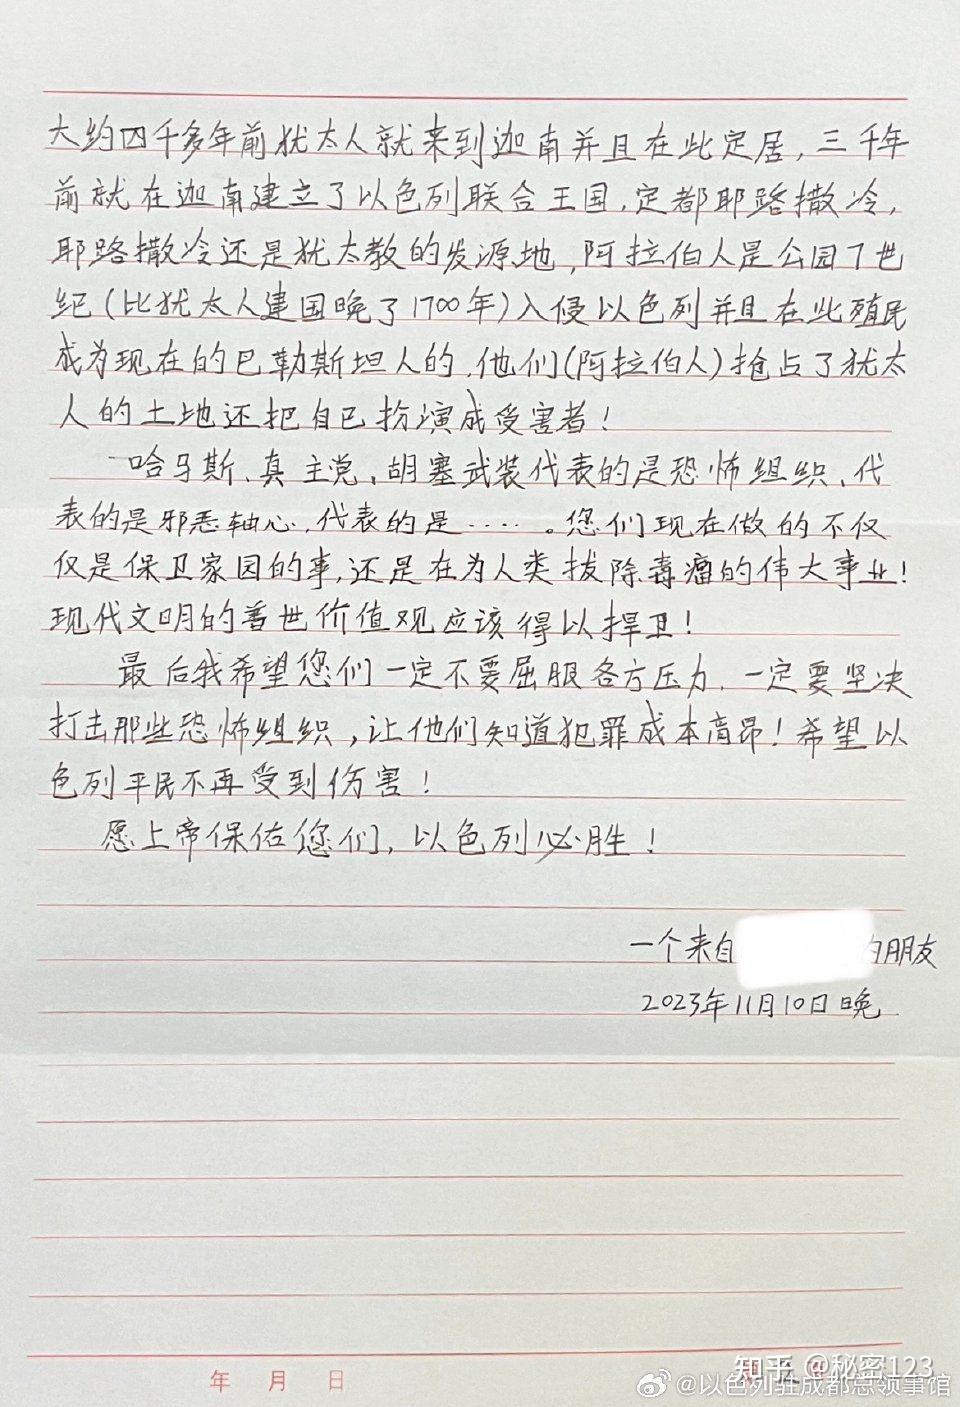 大约四千多年前犹太人就来到迦南并且在此定居，三千年
前就在迦南建立了以色列联合王国，定都耶路撒冷，
耶路撒冷还是犹太教的发源地，阿拉伯人是公园7世
纪（比犹太人建国晚了1700年）入侵以色列并且在此殖民
成为现在的巴勒斯坦人的，他们（阿拉伯人）抢占了犹太
人的土地还把自己扮演成受害者！
哈马斯、真主党、胡塞武装代表的是恐怖组织、代
表的是邪恶轴心，代表的是……。您们现在做的不仅
仅是保卫家园的事，还是在为人类拔除毒瘤的伟大事业！
现代文明的普世价值观应该得以捍卫！
最后我希望您们一定不要屈服各方压力，一定要坚决
打击那些恐怖组织，让他们知道犯罪成本高昂！希望以
色列平民不再受到伤害！
愿上帝保佑您们，以色列必胜！
一个来自 的朋友
2023年11月10日晚
年 月 日
知乎 @秘密123
@以色列驻成都总领事馆